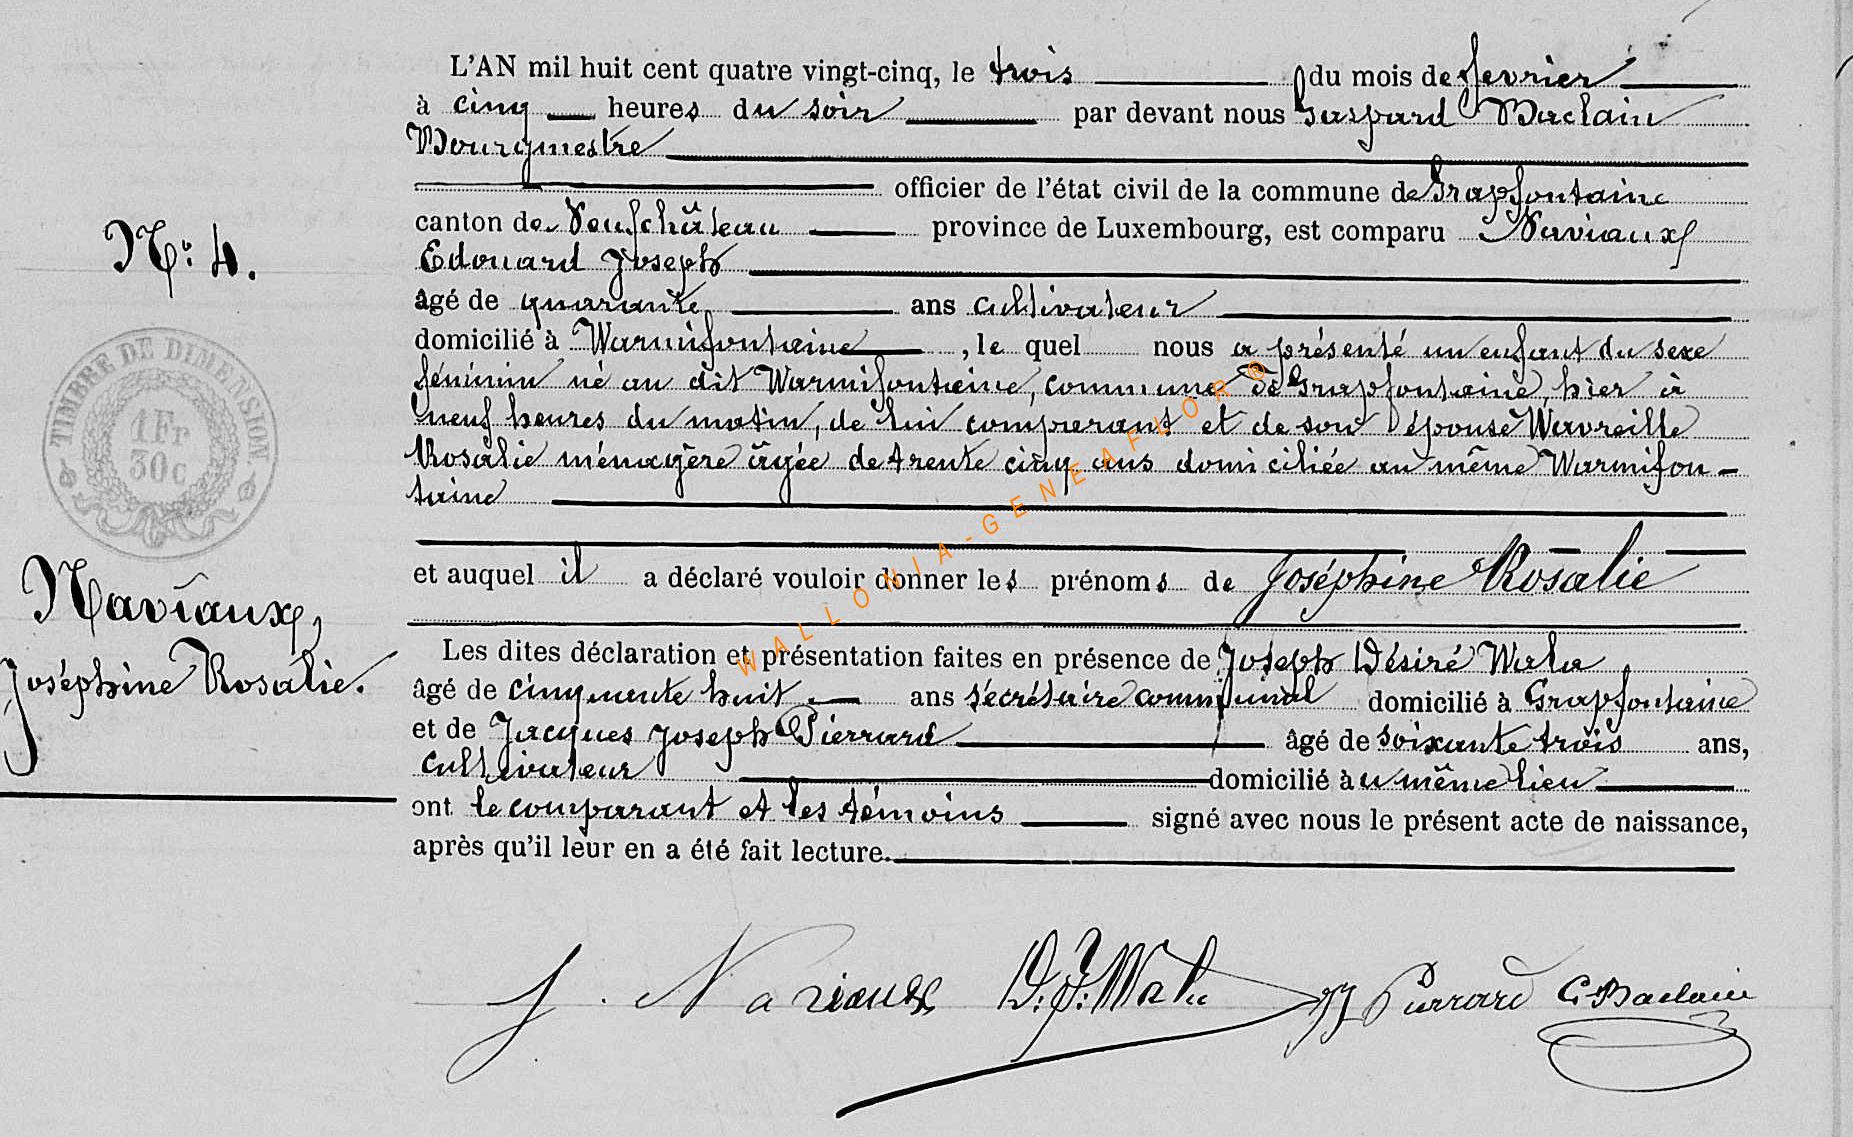 L'AN mil huit cent quatre vingt-cinq, le trois du mois de fevrier
à cinq heures du soir par devant nous Gaspard Baclain
Bourgmestre
officier de l'état civil de la commune de Grapfontaine
canton de Neufchâteau province de Luxembourg, est comparu Naviaux
Edouard Joseph
âgé de quarante ans cultivateur
domicilié à Warmifontaine, le quel nous a présenté un enfant du sexe
féminin né au dit Warmifontaine, commune de Grapfontaine, hier à
neuf heures du matin, de lui comparant et de son épouse Wavreille
Rosalie ménagère âgée de trente cinq ans domiciliée au même Warmifon-
taine
et auquel il a déclaré vouloir donner les prénoms de Joséphine Rosalie
Les dites déclaration et présentation faites en présence de Joseph Désiré Wala
âgé de cinquante huit ans sécrétaire communal domicilié à Grapfontaine
et de Jacques Joseph Pierrard âgé de soixante trois ans,
cultivateur domicilié au même lieu
ont le comparant et les témoins signé avec nous le présent acte de naissance,
après qu'il leur en a été fait lecture.
N°: 4.
TIMBRE DE DIMENSION.
1 Fr
30 c
Naviaux,
Joséphine Rosalie.
J. Naviaux D. J. Wala JJ Pierrard G Baclain
WALLONIA-GENEAFLOR®